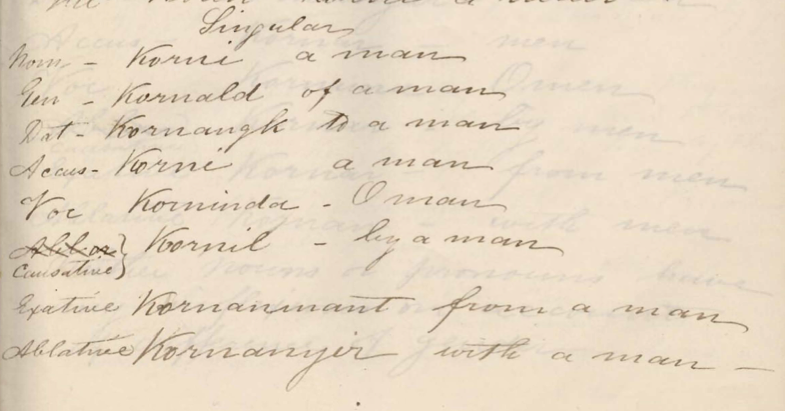 Singular
Nom - Korni a man
Gen - Kornald of a man
Dat - Kornangk to a man
Accus - Korni a man
Voc Korninda - O man
Abl. or
Causative } Kornil - by a man
Exative Kornanmant from a man
Ablative Kornanyir with a man -